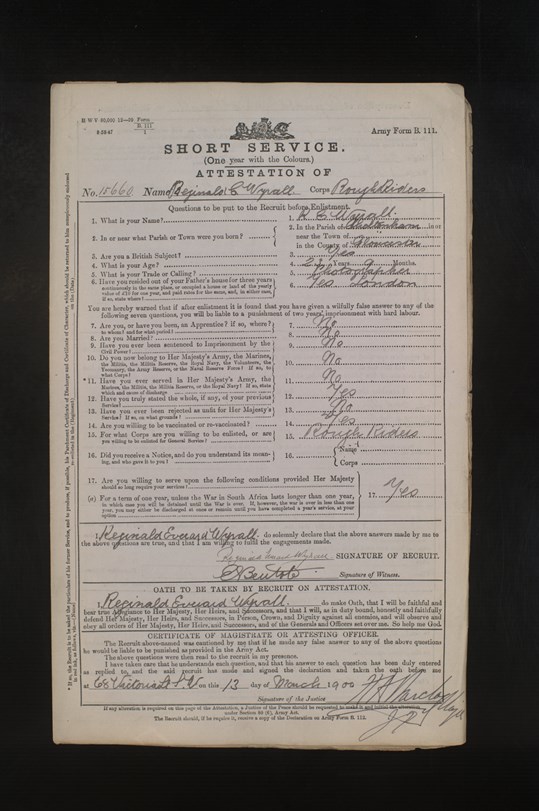 Army Form B. 111.
SHORT SERVICE.
(One year with the Colours.)
ATTESTATION OF
No. 15660 Name Reginald E Wyrall Corps Rough Riders
Questions to be put to the Recruit before Enlistment.
1. What is your Name? 1. R E Wyrall.
2. In or near what Parish or Town were you born? 2. In the Parish of Cheltenham in or
near the Town of
in the County of Gloucester
3. Are you a British Subject? 3. Yes
4. What is your Age? 4. Years Months.
5. What is your Trade or Calling? 5. Photographer
6. Have you resided out of your Father's house for three years 6. Yes London
continuously in the same place, or occupied a house or land of the yearly
value of £10 for one year, and paid rates for the same, and, in either case,
if so, state where?
You are hereby warned that if after enlistment it is found that you have given a wilfully false answer to any of the
following seven questions, you will be liable to a punishment of two years' imprisonment with hard labour.
7. Are you, or have you been, an Apprentice? if so, where? 7. No
to whom? and for what period?
8. Are you Married? 8. No
9. Have you ever been sentenced to Imprisonment by the 9. No
Civil Power?
10. Do you now belong to Her Majesty's Army, the Marines, 10. No
the Militia, the Militia Reserve, the Royal Navy, the Volunteers, the
Yeomanry, the Army Reserve, or the Naval Reserve Force? If so, to
what Corps?
*11. Have you ever served in Her Majesty's Army, the 11. No
Marines, the Militia, the Militia Reserve, or the Royal Navy? If so, state
which and cause of discharge
12. Have you truly stated the whole, if any, of your previous 12. Yes
Service?
13. Have you ever been rejected as unfit for Her Majesty's 13. No
Service? If so, on what grounds?
14. Are you willing to be vaccinated or re-vaccinated? 14. Yes
15. For what Corps are you willing to be enlisted, or are 15. Rough Riders
you willing to be enlisted for General Service?
16. Did you receive a Notice, and do you understand its mean- 16. Name
ing, and who gave it to you? Corps
17. Are you willing to serve upon the following conditions provided Her Majesty
should so long require your services?
(a) For a term of one year, unless the War in South Africa lasts longer than one year, 17. Yes
in which case you will be detained until the War is over. If, however, the war is over in less than one
year, you may either be discharged at once or remain until you have completed a year's service, at your
option
I, Reginald Everard Wyrall. do solemnly declare that the above answers made by me to
the above questions are true, and that I am willing to fulfil the engagements made.
Reginald Everard Wyrall SIGNATURE OF RECRUIT.
Signature of Witness.
OATH TO BE TAKEN BY RECRUIT ON ATTESTATION.
I, Reginald Everard Wyrall. do make Oath, that I will be faithful and
bear true Allegiance to Her Majesty, Her Heirs, and Successors, and that I will, as in duty bound, honestly and faithfully
defend Her Majesty, Her Heirs, and Successors, in Person, Crown, and Dignity against all enemies, and will observe and
obey all orders of Her Majesty, Her Heirs, and Successors, and of the Generals and Officers set over me. So help me God.
CERTIFICATE OF MAGISTRATE OR ATTESTING OFFICER.
The Recruit above-named was cautioned by me that if he made any false answer to any of the above questions
he would be liable to be punished as provided in the Army Act.
The above questions were then read to the recruit in my presence.
I have taken care that he understands each question, and that his answer to each question has been duly entered
as replied to, and the said recruit has made and signed the declaration and taken the oath before me
at 68 Victoria St S.W on this 13 day of March 1900
Signature of the Justice
If any alteration is required on this page of the Attestation, a Justice of the Peace should be requested to make it and initial the alteration
under Section 80 (6), Army Act.
The Recruit should, if he require it, receive a copy of the Declaration on Army Form B. 112.